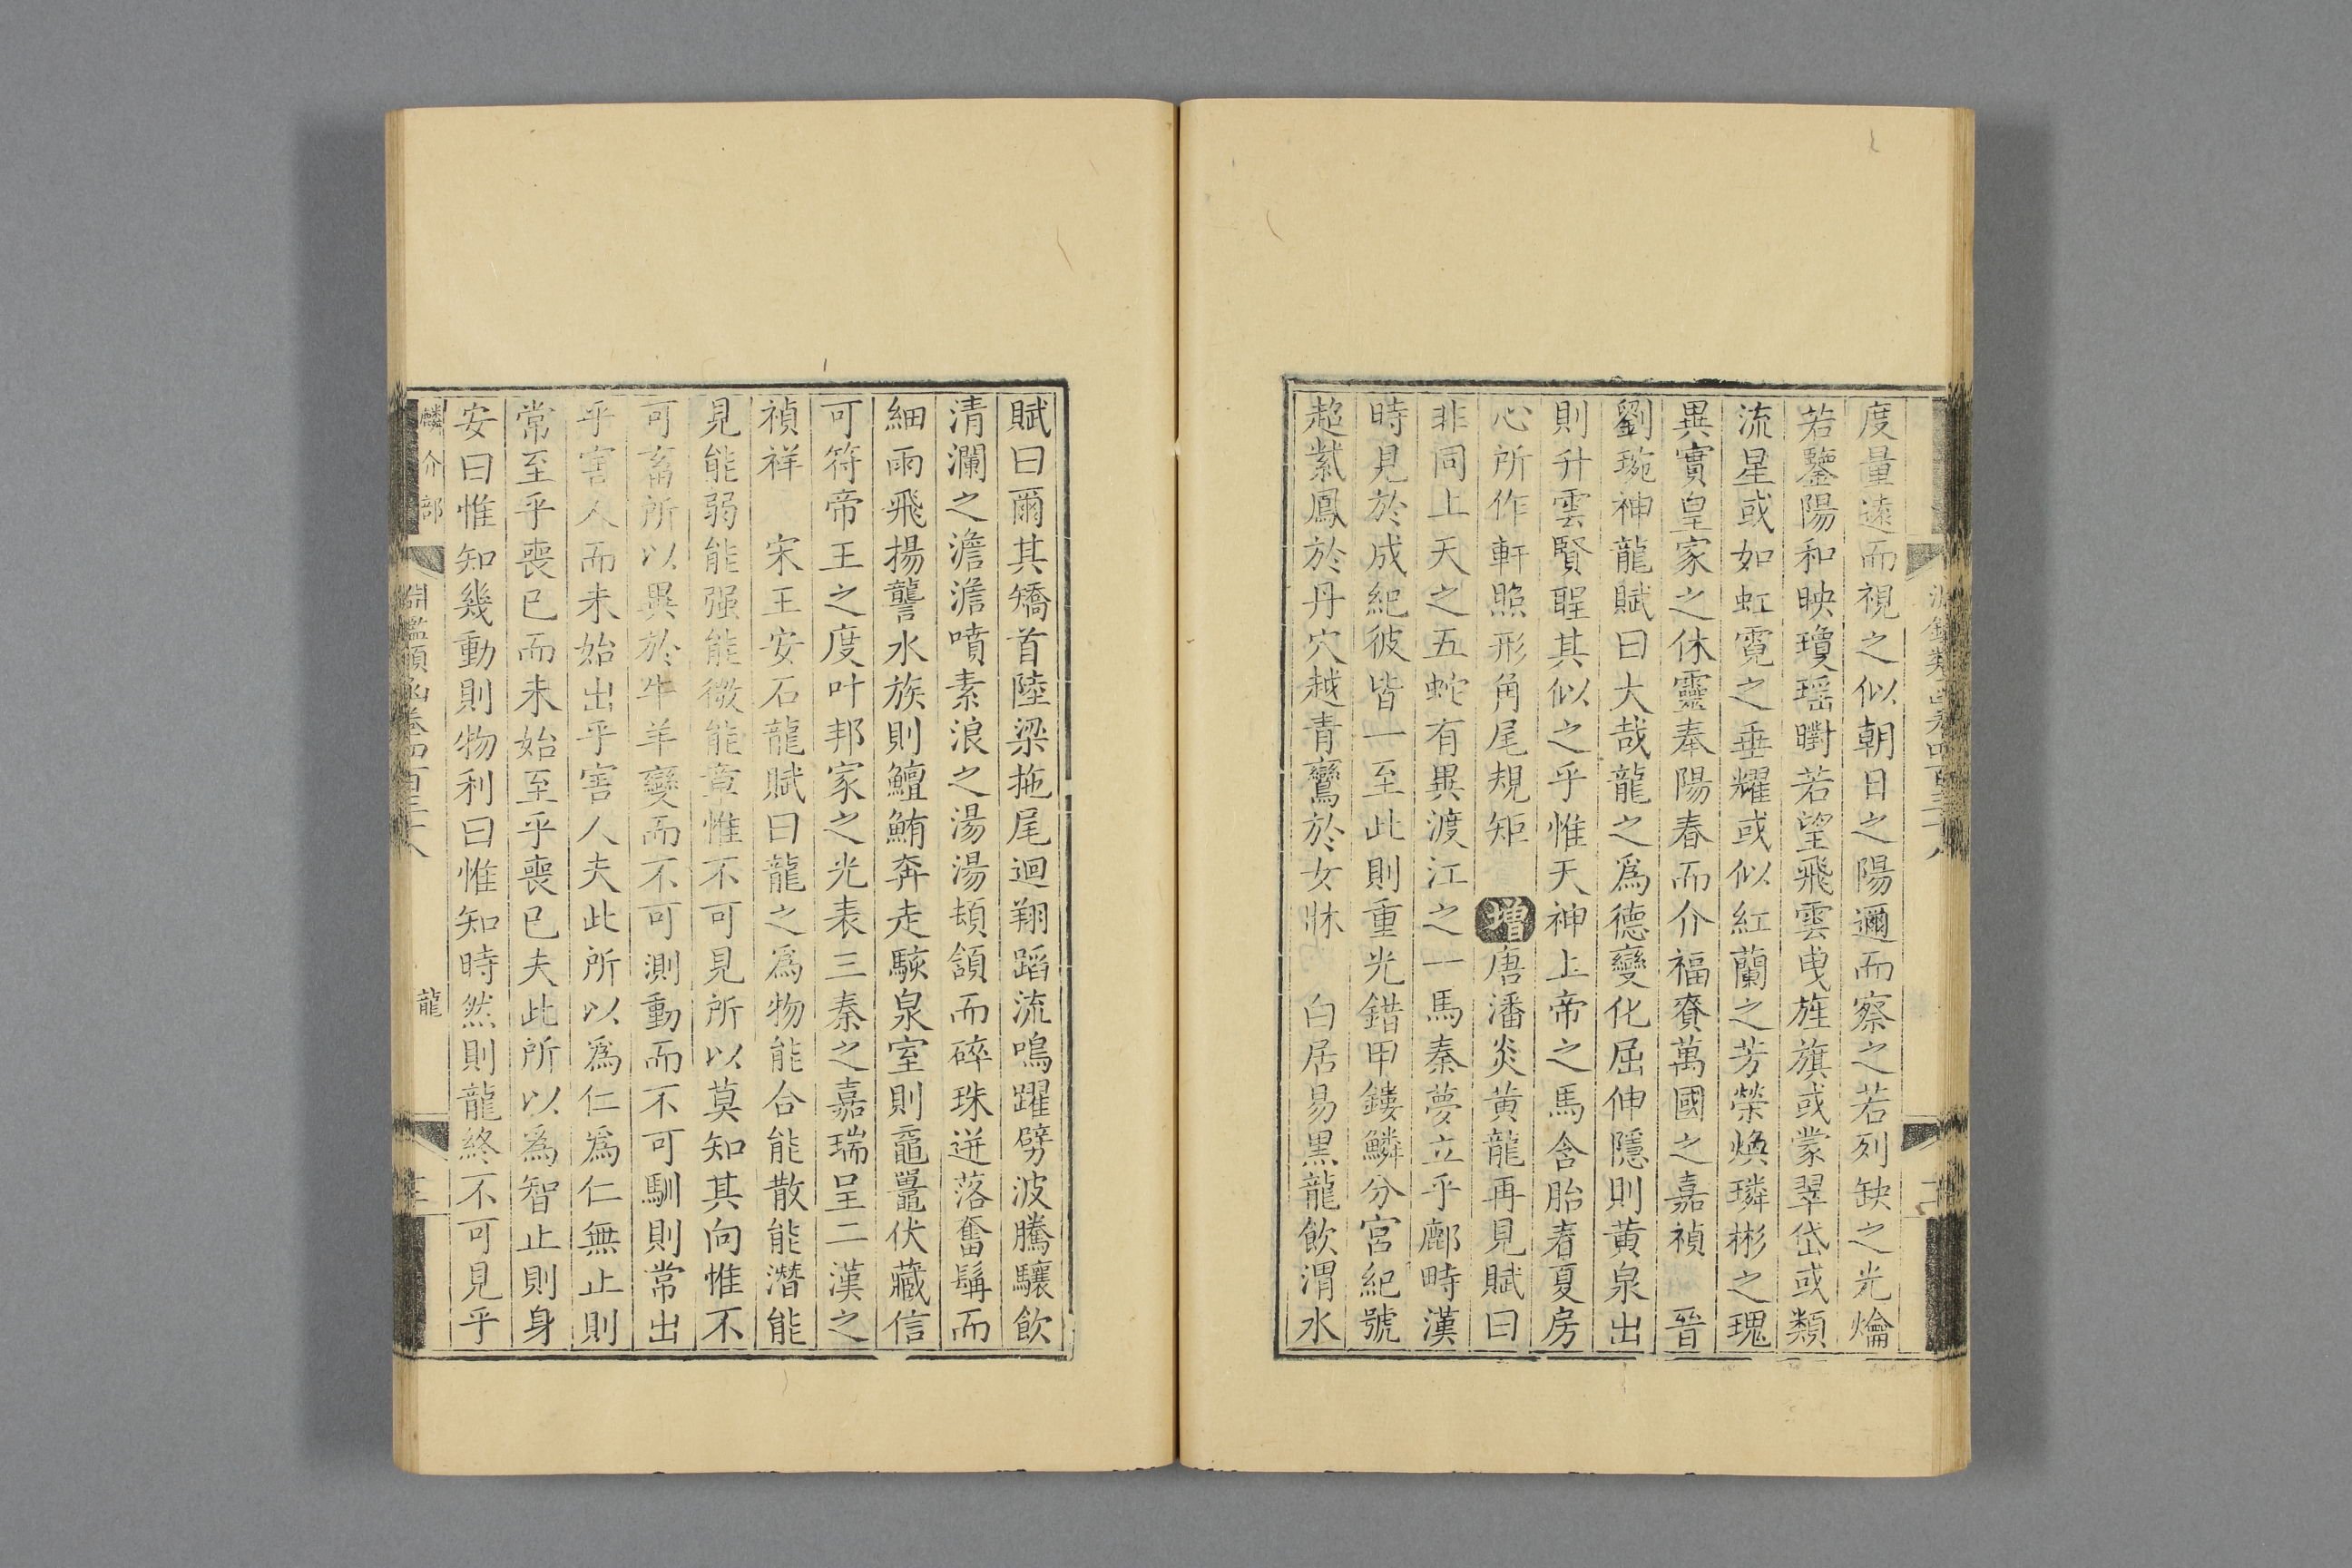 度量遠而視之似朝日之陽邇而察之若列缺之光爚
若鑒陽和映瓊瑶㬣若望飛雲曵旌旗或蒙翠岱或類
流星或如虹霓之垂耀或似紅蘭之芳榮煥璘彬之瑰
異實皇家之休靈奉陽春而介福賚萬國之嘉禎　晉
劉琬神龍賦曰大哉龍之爲德變化屈伸隱則黄泉出
則升雲賢聖其似之乎惟天神上帝之馬含胎春夏房
心所作軒照形角尾規矩　增唐潘炎黄龍再見賦曰
非同上天之五蛇有異渡江之一馬秦夢立乎鄜畤漢
時見於成紀彼皆一至此則重光錯甲鏤鱗分宫紀號
超紫鳳於丹穴越青鸞於女牀　白居易黑龍飲渭水
賦曰爾其矯首陸梁拖尾迴翔蹈流鳴躍劈波騰驤飲
清瀾之澹澹噴素浪之湯湯頡頷而碎珠迸落奮鬐而
細雨飛揚讋水族則鱣鮪奔走駭泉室則黿鼉伏藏信
可符帝王之度叶邦家之光表三秦之嘉瑞呈二漢之
禎祥　宋王安石龍賦曰龍之爲物能合能散能潛能
見能弱能强能微能章惟不可見所以莫知其向惟不
可畜所以異於牛羊變而不可測動而不可馴則常出
乎害人而未始出乎害人夫此所以爲仁爲仁無止則
常至乎喪已而未始至乎喪已夫此所以爲智止則身
安曰惟知幾動則物利曰惟知時然則龍終不可見乎
鱗介部　淵鑑類函卷四百三十八　龍　三